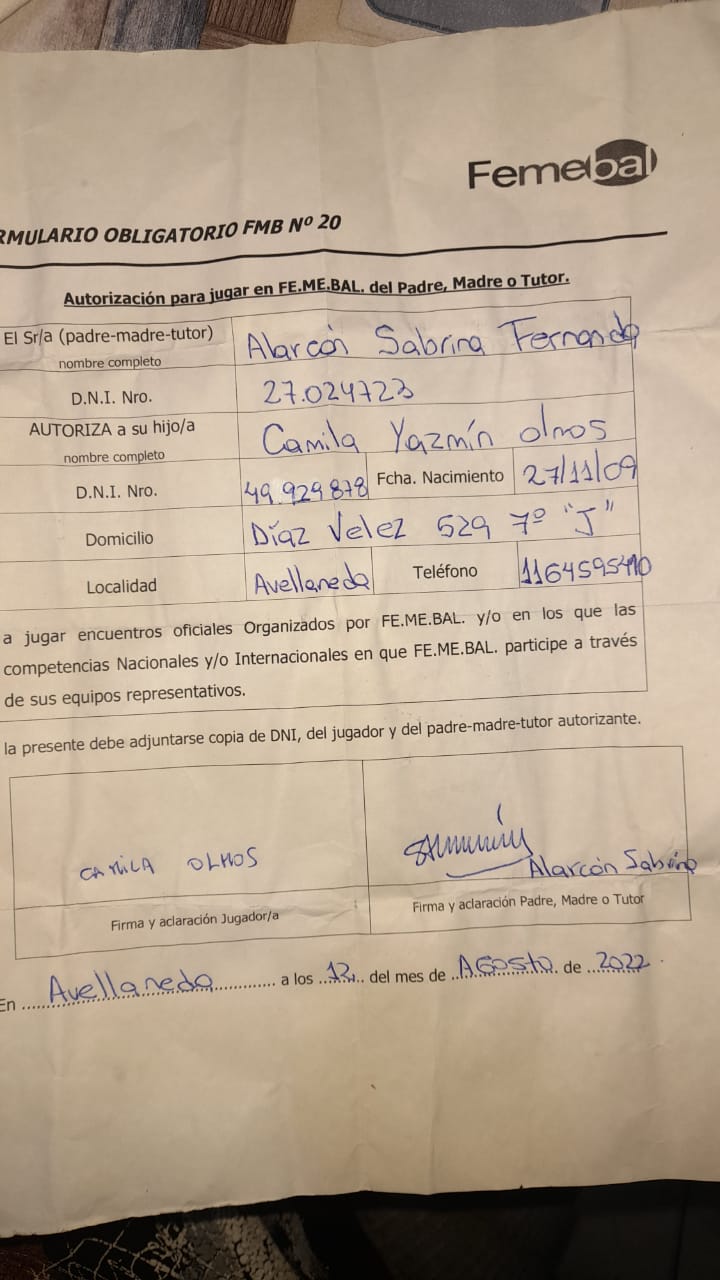 Femebal
RMULARIO OBLIGATORIO FMB Nº 20
Autorización para jugar en FE.ME.BAL. del Padre, Madre o Tutor.
El Sr/a (padre-madre-tutor) Alarcón Sabrina Fernanda
nombre completo
D.N.I. Nro. 27.024723
AUTORIZA a su hijo/a Camila Yazmín Olmos
nombre completo
D.N.I. Nro. 49.929878 Fcha. Nacimiento 27/11/09
Domicilio Díaz Velez 529 7º "J"
Localidad Avellaneda Teléfono
a jugar encuentros oficiales Organizados por FE.ME.BAL. y/o en los que las
competencias Nacionales y/o Internacionales en que FE.ME.BAL. participe a través
de sus equipos representativos.
la presente debe adjuntarse copia de DNI, del jugador y del padre-madre-tutor autorizante.
CAMILA OLMOS
Alarcón Sabrina
Firma y aclaración Jugador/a Firma y aclaración Padre, Madre o Tutor
En Avellaneda a los del mes de AGOSTO de 2022